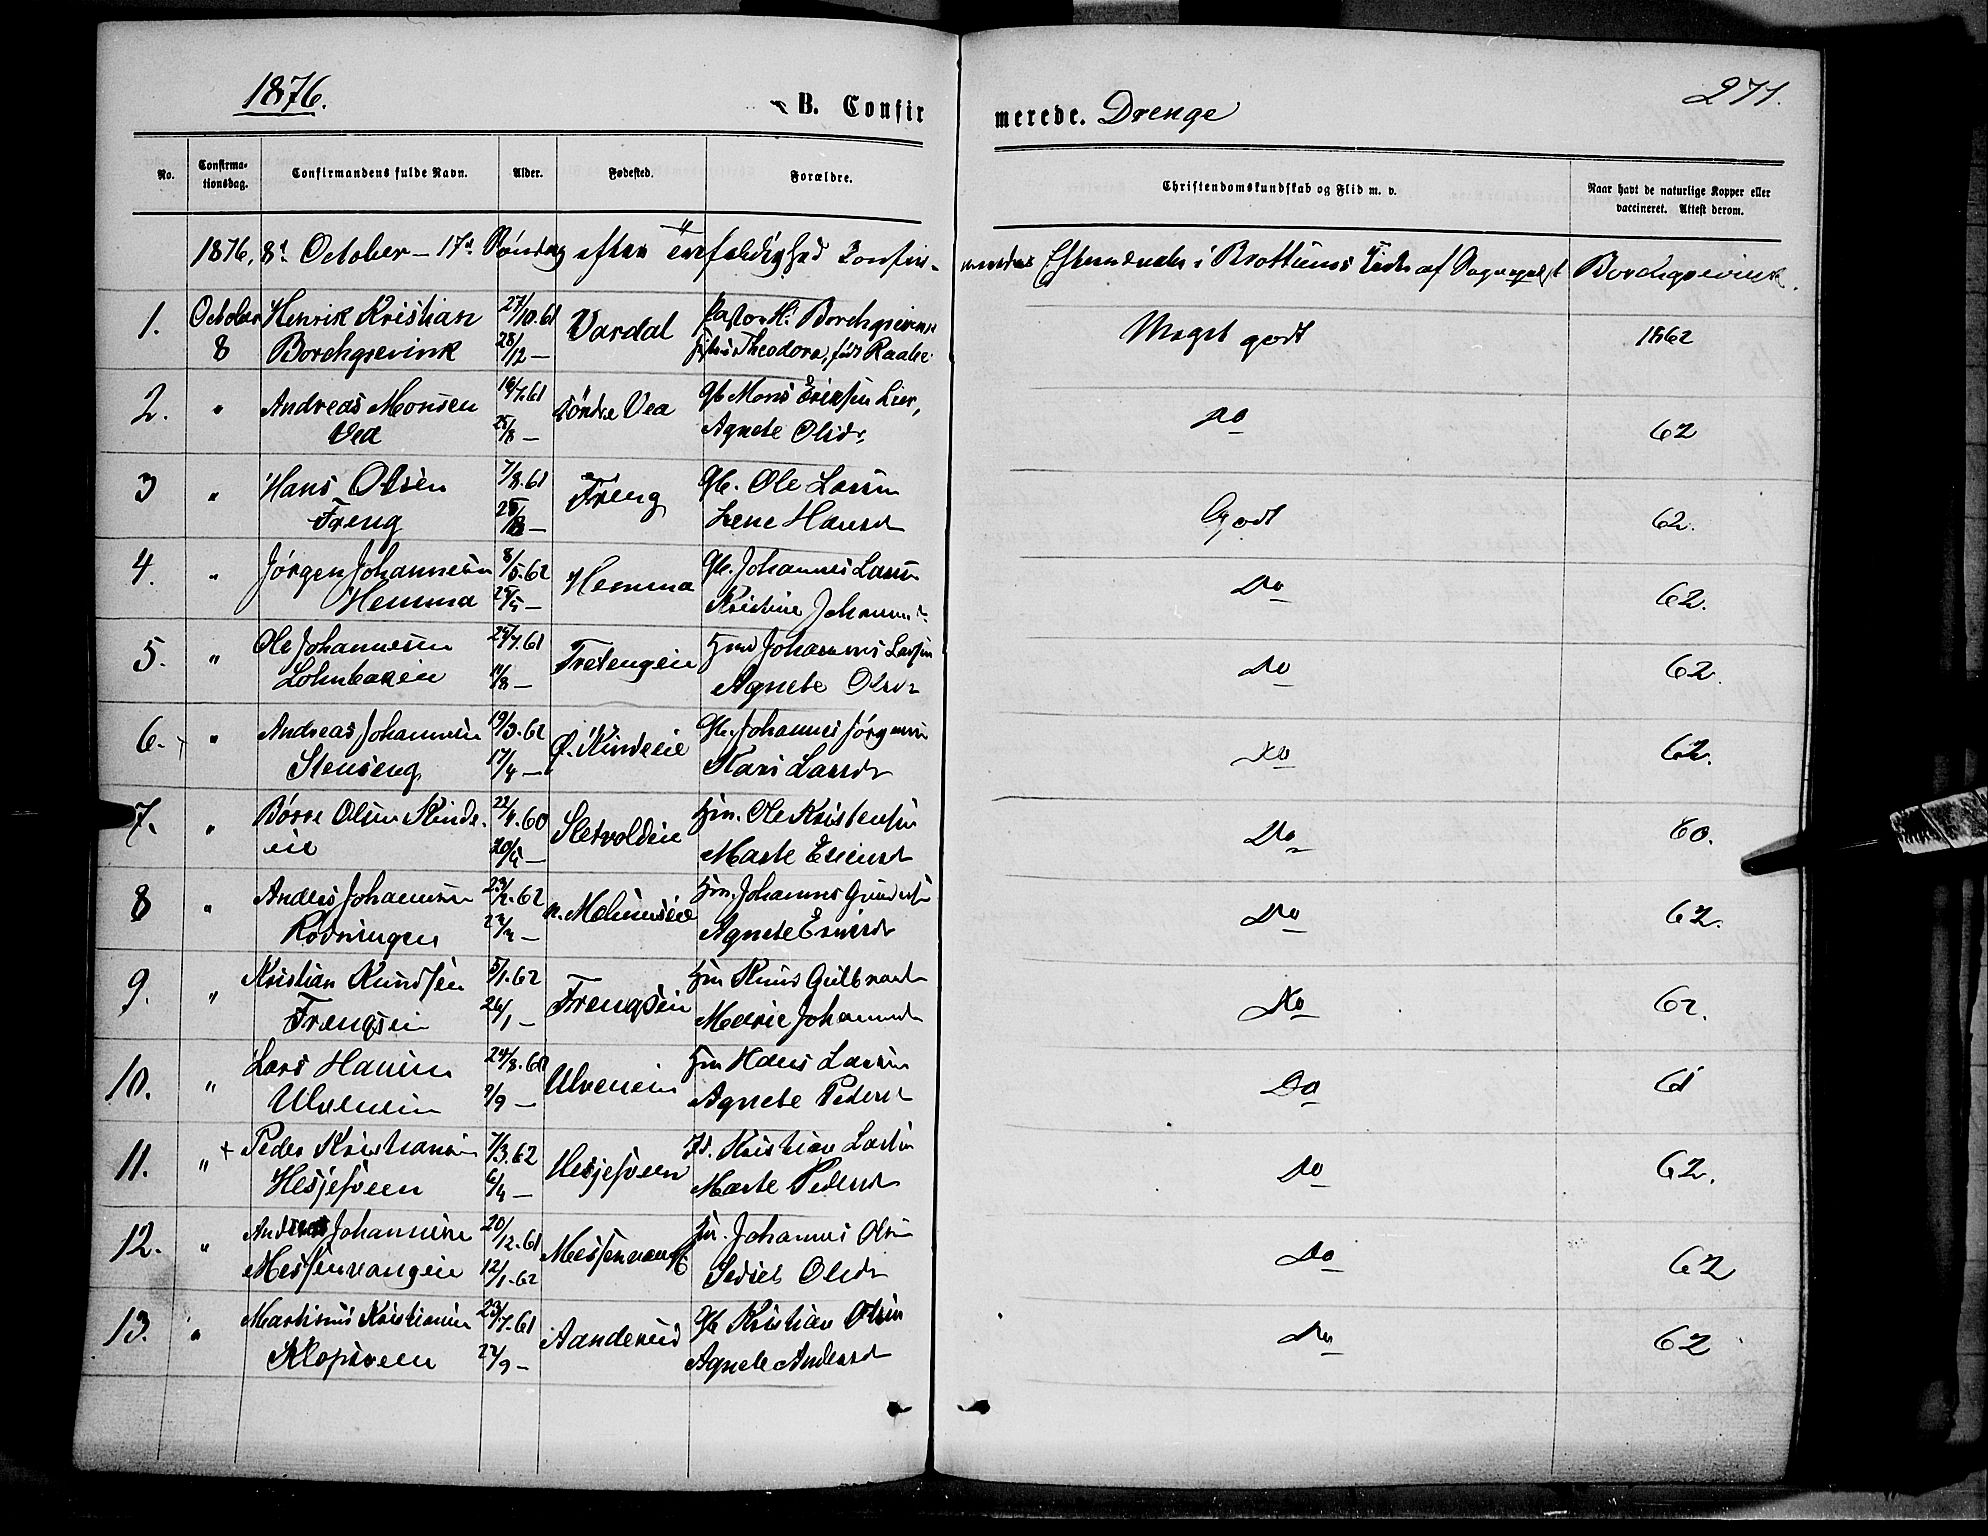 1876.
B. Confirmerede. Drenge
271.
No. Confirmationsdag. Confirmandens fulde Navn. Alder. Fødested. Forældre. Christendomskundskab og Flid m. v. Naar havt de naturlige Kopper eller vaccineret. Attest derom.
1876, 8d October – 17d Søndag efter Trefoldighed Confirmeredes Efternævnte i Brøttums Kirke af Sognepræst Borchgrevink.
1. October 8 Henrik Kristian 27/10.61 Vardal Pastor H. Borchgrevink Meget godt 1862
Borchgrevink 28/12 – Theodora, født Raabe
2. " Andreas Monsen 19/7.61 Søndre Vea Gb Mons Ericsen Lier, do 62
Vea 25/8 – Agnete Olsdr
3 " Hans Olsen 7/8.61 Freng Gb. Ole Larsen Godt 62.
Freng 25/8 – Lene Hansd
4. " Jørgen Johannesen 8/5.62 Hemma Gb. Johannes Larsen Do 62.
Hemma 25/5 – Kristine Johannesd
5. " Ole Johannesen 25/7.61 Fretengeie Johannes Larsen Do 62.
11/8 – Agnete Olsdr
6. " Andreas Johannesen 19/3.62 Ø. Kindeeie Gb. Johannes Jørgensen Do 62.
Stenseng 17/4 – Kari Larsdr
7. " Børre Olsen Kinde- 22/4.60 Sletvoldeie Hm. Ole Kristensen Do 60.
eie 20/5 – Marte Ericsd
8 " Anders Johannesen 23/2.62 n. Mohnseie Hm. Johannes Do 62.
Rødningen 23/4 – Agnete
9. " Kristian Knudsen 5/1.62 Frengseie Hm Knud Gulbrands Do 62.
Frengseie 26/1 – Marie Johannesd
10. " Lars Hansen 24/8.60 Ulveneie Hm Hans Larsen Do 61
Ulveneie 9/9 – Agnete Pedersd
11. " + Peder Kristiansen 7/3.62 Hesjesveen Kristian Larsen Do 62.
Hesjesveen 6/4 – Marte Pedersd
12. " Andreas Johannesen 20/12.61 Messenvang Johannes Olsen Do 62
Messenvangen 12/1.62 Sedsel Olsdr
13. " Martinus Kristiansen 23/7.61 Aanderud Gb Kristian Olsen Do 62
Klopsveen 22/9 – Agnete Andersd